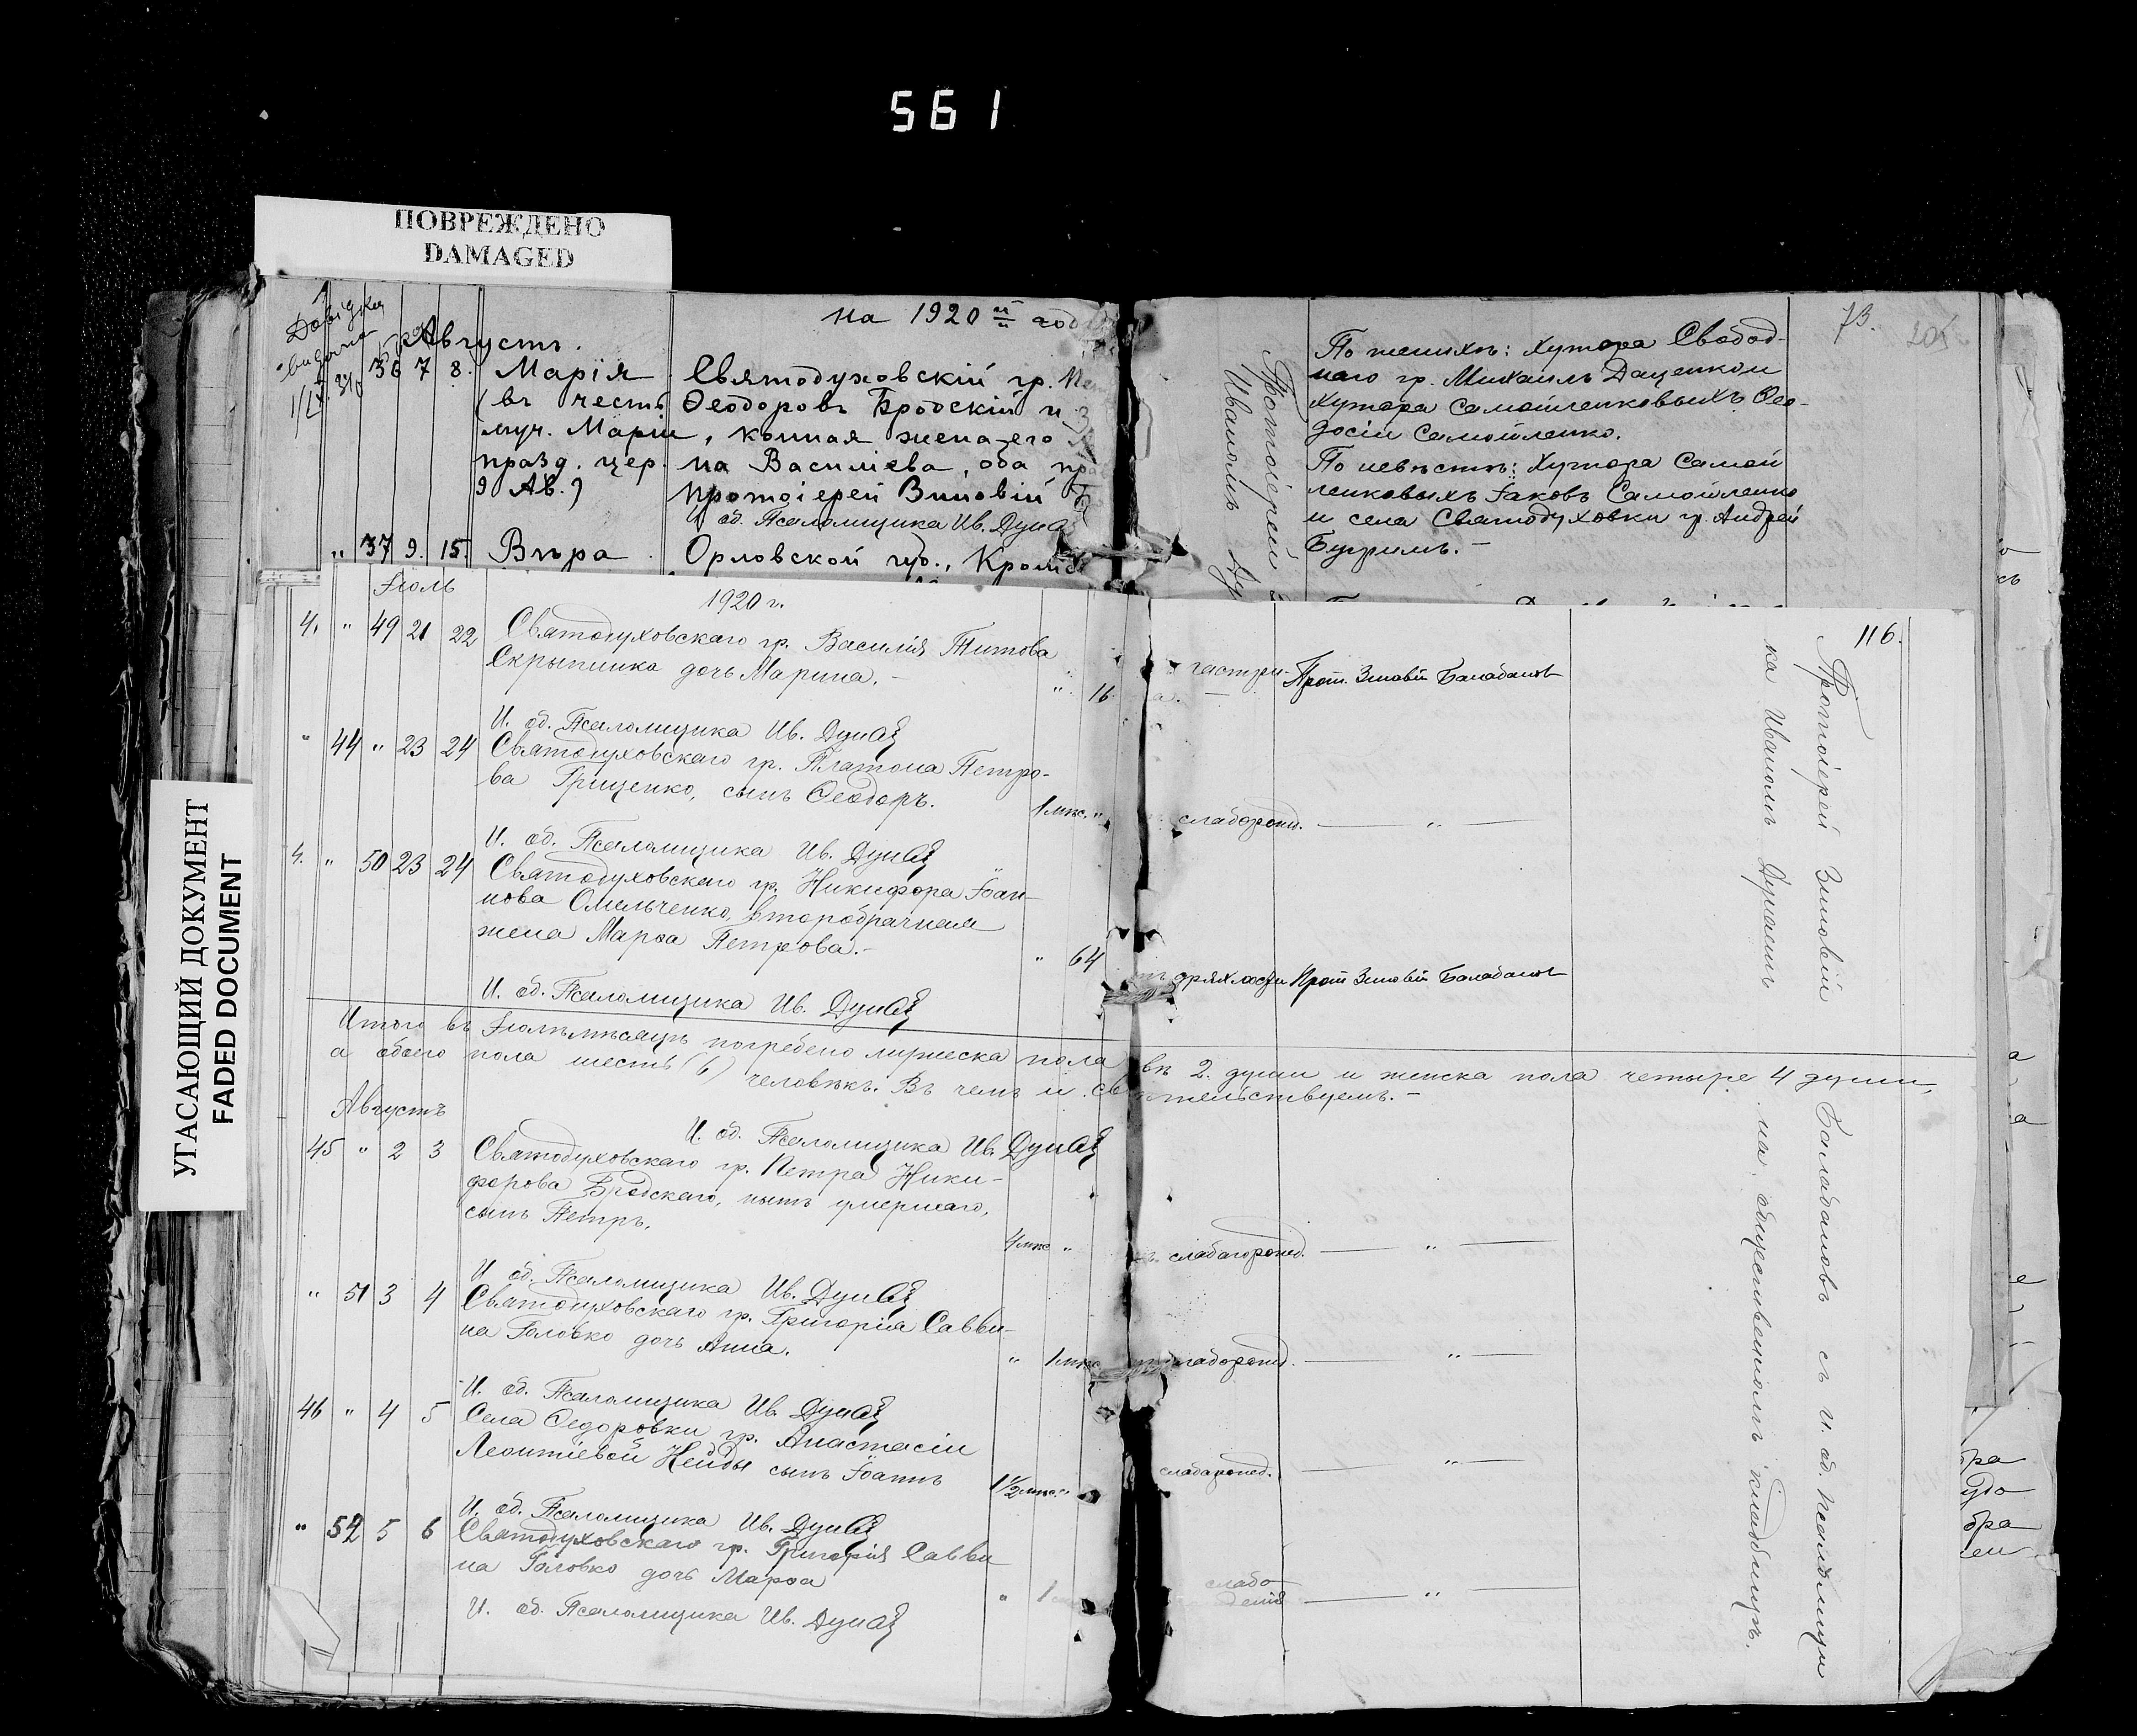 561
ПОВРЕЖДЕНО
DAMAGED
УГАСАЮЩИЙ ДОКУМЕНТ
FADED DOCUMENT
на 1920 й год
Довідка
видана
Августъ.
36 7 8. Марія Святодуховскій гр.
(въ честь Ѳеодоровъ Бродскій и
муч. Маріи, конная жена его
празд. цер. на Василіева, оба пр
9 Ав.) протоіерей Зиновій
И. об. Псаломщика Ив. Дунай
" 37 9. 15. Вѣра Орловской губ.,
73.
По женихѣ: хутора Свобод-
наго гр. Михаилъ Даценко и
хутора Самойленковыхъ Ѳео-
досій Самойленко.
По невѣстѣ: хутора Самой
ленковыхъ Іаковъ Самойленко
и села Святодуховки гр. Андрей
Бугримъ.-
Протоіерей
Иваномъ
Іюль
1920 г.
116.
4. " 49 21 22 Святодуховскаго гр. Василія Титова
Скрыпника дочь Марина.- " 16 Прот. Зиновій Балабановъ
И. об. Псаломщика Ив. Дунай
" 44 " 23 24 Святодуховскаго гр. Платона Петро-
ва Грищенко, сынъ Ѳеодоръ. 1 мѣс. " слаборожд. — " —
И. об. Псаломщика Ив. Дунай
4. " 50 23 24 Святодуховскаго гр. Никифора Іоан-
нова Омельченко, второбрачная
жена Марѳа Петрова.- " 64 дряхлости Прот Зиновій Балабановъ
И. об. Псаломщика Ив. Дунай
Итого въ Іюлѣ мѣсяцѣ погребено мужеска пола двѣ 2. души и женска пола четыре 4 души,
а обоего пола шесть (6) человѣкъ. Въ чемъ и свидѣтельствуемъ.-
Августъ
И. об. Псаломщика Ив. Дунай
45 " 2 3 Святодуховскаго гр. Петра Ники-
форова Бродскаго, нынѣ умершаго,
сынъ Петръ. 4 мѣс " слабагорожд. — " —
И об. Псаломщика Ив. Дунай
" 51 3 4 Святодуховскаго гр. Григорія Савви-
на Головко дочь Анна. " 1 мѣс слаборожд. — " —
И. об. Псаломщика Ив. Дунай
46 " 4 5 Села Ѳедоровки гр. Анастасіи
Леонтіевой Нейды сынъ Іоаннъ 1 1/2 мѣс. " слабарожд. — " —
И. об. Псаломщика Ив. Дунай
" 52 5 6 Святодуховскаго гр. Григорія Савви
на Головко дочь Марѳа " 1 слабо — " —
И. об. Псаломщика Ив. Дунай
Протоіерей Зиновій Балабановъ съ и. об. псаломщи
ка Иваномъ Дунаемъ на общественномъ кладбищѣ.